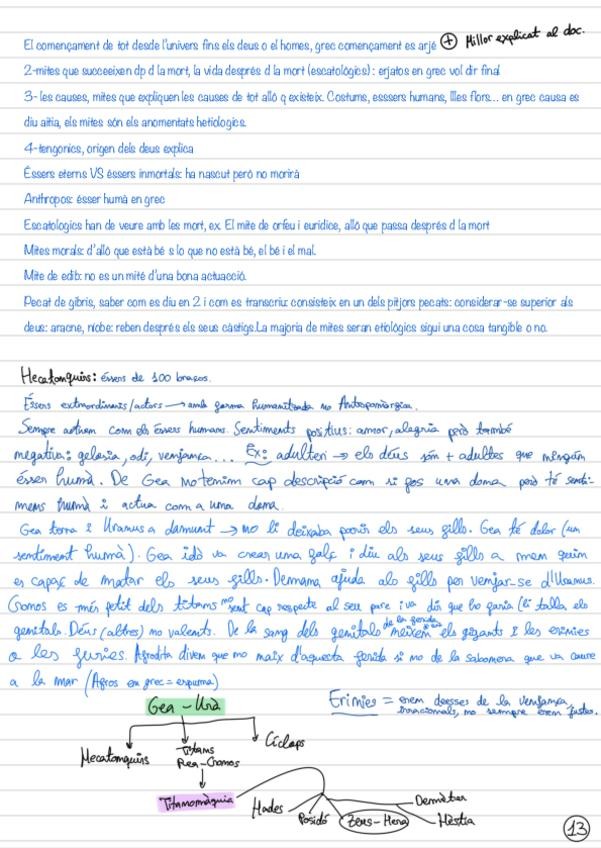 El començament de tot desde l'univers fins els deus o el homes, grec començament es arjé + Millor explicat al doc.
2-mites que succeeixen dp d la mort, la vida després d la mort (escatològics) : erjatos en grec vol dir final
3- les causes, mites que expliquen les causes de tot alló q existeix. Costums, esssers humans, Illes flors... en grec causa es
diu aitia, els mites són els anomentats hetiologics.
4-tengonics, origen dels deus explica
Éssers eterns VS éssers inmortals: ha nascut peró no morirà
Anthropos: ésser humà en grec
Escatologics han de veure amb les mort, ex. El mite de orfeu i euridice, alló que passa després d la mort
Mites morals: d'alló que està bé s lo que no està bé, el bé i el mal.
Mite de edib: no es un mité d'una bona actuacció.
Pecat de gibris, saber com es diu en 2 i com es transcriu: consisteix en un dels pitjors pecats: considerar-se superior als
deus: aracne, níobe: reben després els seus càstigs.La majoria de mites seran etiològics sigui una cosa tangible o no.
Hecatonquirs: éssers de 100 braços.
Éssers extraordinaris/actors → amb forma humanitzada no Antropomòrgica.
Sempre actuen com els éssers humans. Sentiments positius: amor, alegria però també
negativa: gelosia, odi, venjança... Ex: adulteri → els déus són + adultes que ningún
ésser humà. De Gea no tenim cap descripció com si fos una dona però té senti-
mens humà i actua com a una dona.
Gea terra i Uranus a damunt → no li deixaba parir els seus gills. Gea té dolor (un
sentiment humà). Gea idò va crear una falç i diu als seus gills a mem quim
es capaç de matar els seus gills. Demana ajuda als gills per venjar-se d'Uranus.
Cronos es més petit dels titans no sent cap respecte al seu pare i va dir que ho faria (li talla els
genitals. Déus (altres) no valents. De la sang dels genitals de la ferida neixen els gigants i les erinies
o les furies. Afrodita diven que no naix d'aquesta ferida si no de la sabonera que va caure
a la mar (Afros en grec = espuma)
Erinies = eren deesses de la venjança,
irracionals, no sempre eren justes.
Gea - Urà
Hecatonquirs Titans Cíclops
Rea-Cronos
Titanomàquia Hades Posidó Zeus-Hera Demèter
Hèstia
13